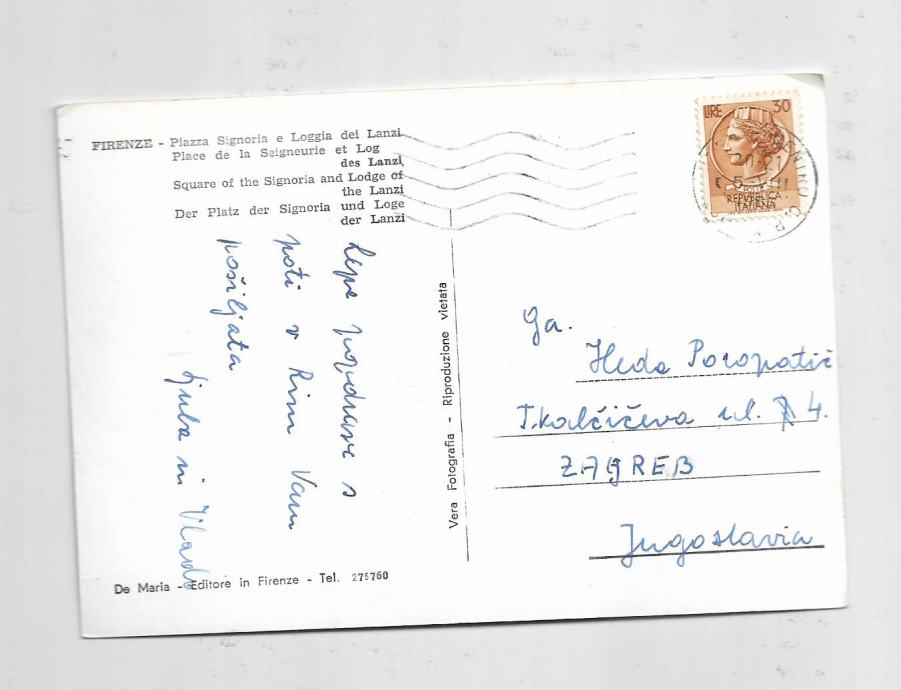 FIRENZE - Piazza Signoria e Loggia dei Lanzi
Place de la Seigneurie et Log
des Lanzi
Square of the Signoria and Lodge of
the Lanzi
Der Platz der Signoria und Loge
der Lanzi
Lepe pozdrave s
poti v Rim Vam
pošiljata
Ljuba in Vlado
De Maria - Editore in Firenze - Tel. 275760
Vera Fotografia - Riproduzione vietata
LIRE 30
POSTE
REPVBBLICA
ITALIANA
20-21
Ga.
Heda Poropatić
T.kalčićeva ul. 4.
ZAGREB
Jugoslavia